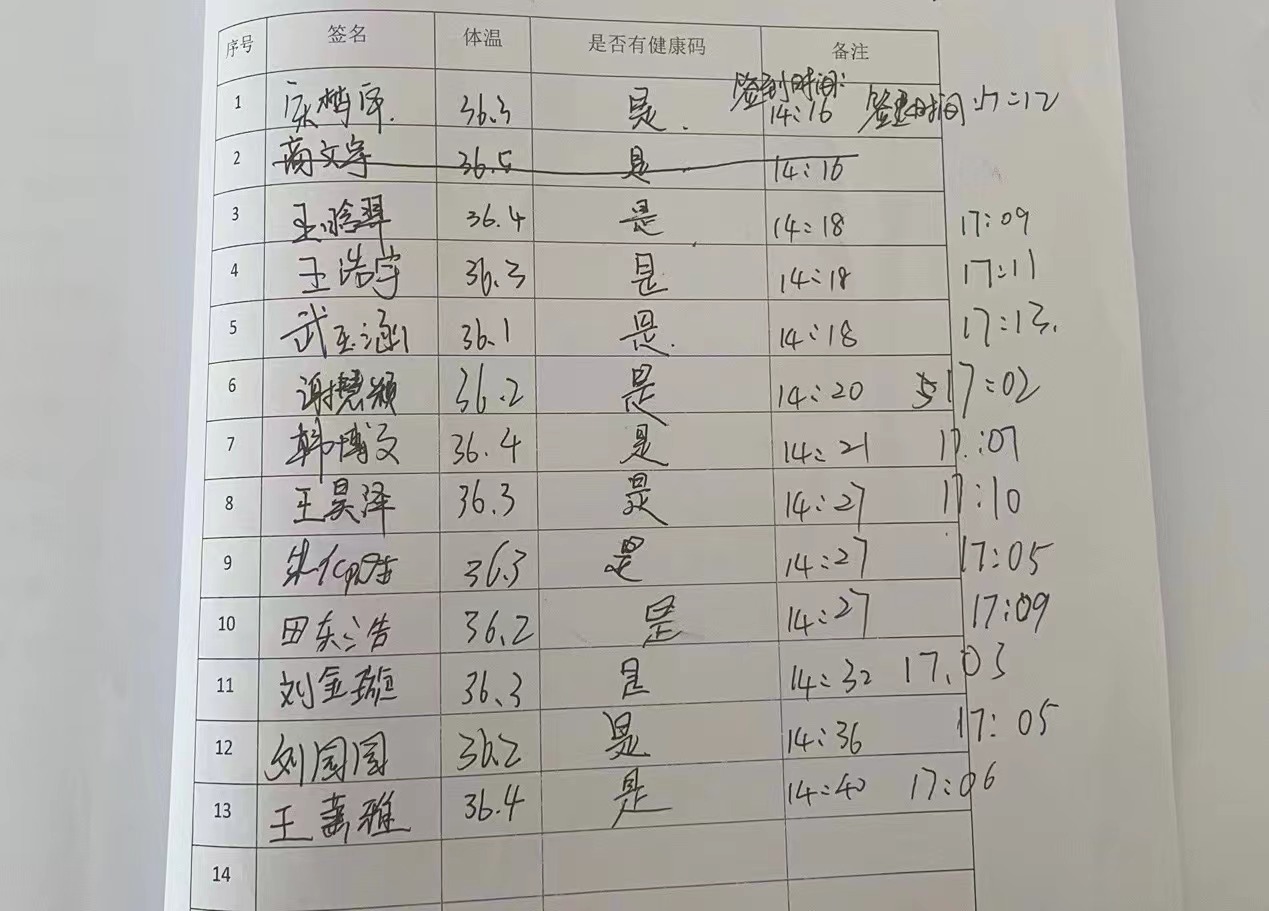 序号 签名 体温 是否有健康码 备注
签到时间: 签退时间:
1 36.3 是. 14:16 17:12
2 商文宇 36.5 是 14:16
3 王 36.4 是 14:18 17:09
4 王浩宇 36.3 是 14:18 17:11
5 武玉涵 36.1 是. 14:18 17:13.
6 谢慧颖 36.2 是 14:20 17:02
7 韩博文 36.4 是 14:21 17:07
8 王昊泽 36.3 是 14:27 17:10
9 朱 36.3 是 14:27 17:05
10 田东浩 36.2 是 14:27 17:09
11 刘金璇 36.3 是 14:32 17.03
12 刘园园 36.2 是 14:36 17:05
13 王 雅 36.4 是 14:40 17:06
14